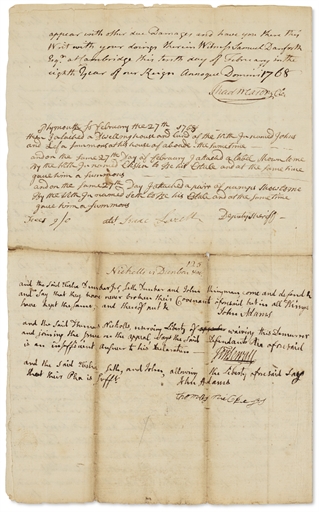 appear with other due Damages and have you there this
Writ with your doings therein Witness Samuel Danforth
Esqr. at Cambridge this fourth day of February in the
eighth Year of our Reign Annoque Domini 1768
Thad Mason Cle
Plymouth ss February the 27th 1768
then I attached a Dwelling house and Land of the within named
and left a summons at his house of abode at the same time
and on the same 27th Day of February I attached a Table Shown to me
by the within named to be his Estate and at the same time
gave him a summons
and on the same 27th Day I attached a pair of pumps Shown to me
By the within named Seth to be his Estate and at the same time
gave him a summons
fees 9/5 Deputy Sheriff
Nicholls vs
and the said Elisha Dunbar Seth Dunbar and John come and defend &c
and Say that they have never broken their Covenant aforesaid but in all Things
have kept the same and thereof put &c
John Adams
and the said Thomas Nicholls reserving Liberty of waiving this Demurrer
and joining the Issue on the appeal Says the said Defendants Plea aforesaid
is an insufficient Answer to his Declaration
and the said Elisha, Seth, and John, allowing the Liberty aforesaid Say
that their Plea is sufft.
John Adams